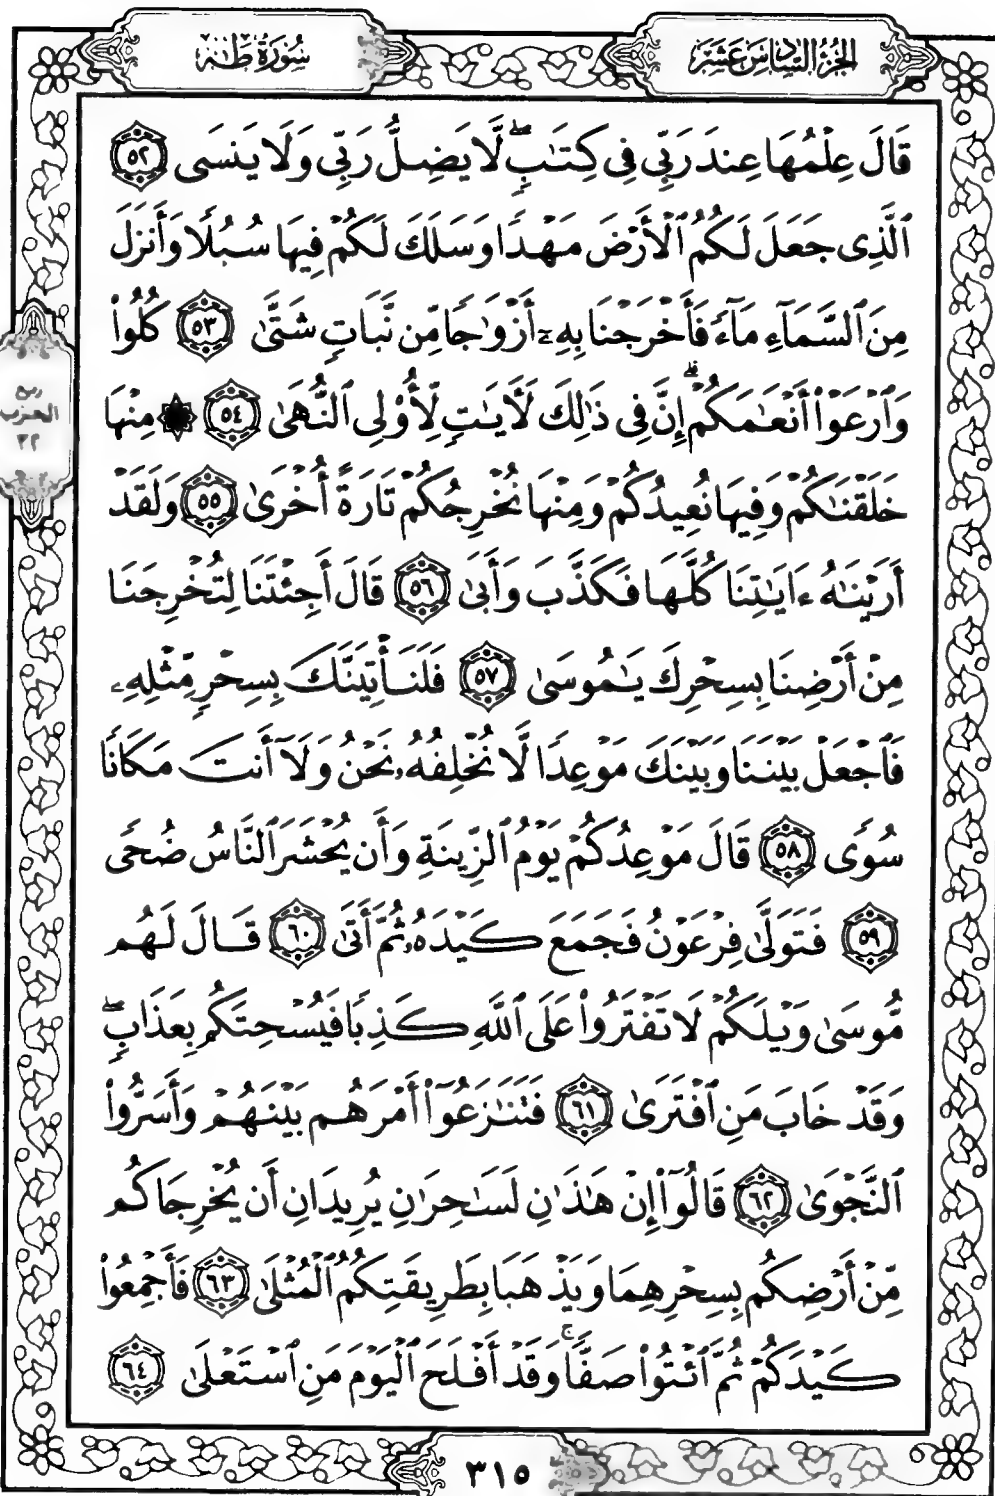 الجُزْءُ السَّادِسَ عَشَرَ
سُورَةُ طه
قَالَ عِلْمُهَا عِندَ رَبِّى فِى كِتَٰبٍۖ لَّا يَضِلُّ رَبِّى وَلَا يَنسَى ٥٢
ٱلَّذِى جَعَلَ لَكُمُ ٱلْأَرْضَ مَهْدًا وَسَلَكَ لَكُمْ فِيهَا سُبُلًا وَأَنزَلَ
مِنَ ٱلسَّمَآءِ مَآءً فَأَخْرَجْنَا بِهِۦٓ أَزْوَٰجًا مِّن نَّبَاتٍ شَتَّىٰ ٥٣ كُلُوا۟
وَٱرْعَوْا۟ أَنْعَٰمَكُمْۗ إِنَّ فِى ذَٰلِكَ لَءَايَٰتٍ لِّأُو۟لِى ٱلنُّهَىٰ ٥٤ ۞ مِنْهَا
خَلَقْنَٰكُمْ وَفِيهَا نُعِيدُكُمْ وَمِنْهَا نُخْرِجُكُمْ تَارَةً أُخْرَىٰ ٥٥ وَلَقَدْ
أَرَيْنَٰهُ ءَايَٰتِنَا كُلَّهَا فَكَذَّبَ وَأَبَىٰ ٥٦ قَالَ أَجِئْتَنَا لِتُخْرِجَنَا
مِنْ أَرْضِنَا بِسِحْرِكَ يَٰمُوسَىٰ ٥٧ فَلَنَأْتِيَنَّكَ بِسِحْرٍ مِّثْلِهِۦ
فَٱجْعَلْ بَيْنَنَا وَبَيْنَكَ مَوْعِدًا لَّا نُخْلِفُهُۥ نَحْنُ وَلَآ أَنتَ مَكَانًا
سُوًى ٥٨ قَالَ مَوْعِدُكُمْ يَوْمُ ٱلزِّينَةِ وَأَن يُحْشَرَ ٱلنَّاسُ ضُحًى
٥٩ فَتَوَلَّىٰ فِرْعَوْنُ فَجَمَعَ كَيْدَهُۥ ثُمَّ أَتَىٰ ٦٠ قَالَ لَهُم
مُّوسَىٰ وَيْلَكُمْ لَا تَفْتَرُوا۟ عَلَى ٱللَّهِ كَذِبًا فَيُسْحِتَكُم بِعَذَابٍۖ
وَقَدْ خَابَ مَنِ ٱفْتَرَىٰ ٦١ فَتَنَٰزَعُوٓا۟ أَمْرَهُم بَيْنَهُمْ وَأَسَرُّوا۟
ٱلنَّجْوَىٰ ٦٢ قَالُوٓا۟ إِنْ هَٰذَٰنِ لَسَٰحِرَٰنِ يُرِيدَانِ أَن يُخْرِجَاكُم
مِّنْ أَرْضِكُم بِسِحْرِهِمَا وَيَذْهَبَا بِطَرِيقَتِكُمُ ٱلْمُثْلَىٰ ٦٣ فَأَجْمِعُوا۟
كَيْدَكُمْ ثُمَّ ٱئْتُوا۟ صَفًّاۚ وَقَدْ أَفْلَحَ ٱلْيَوْمَ مَنِ ٱسْتَعْلَىٰ ٦٤
ربع
الحزب
٣٢
٣١٥